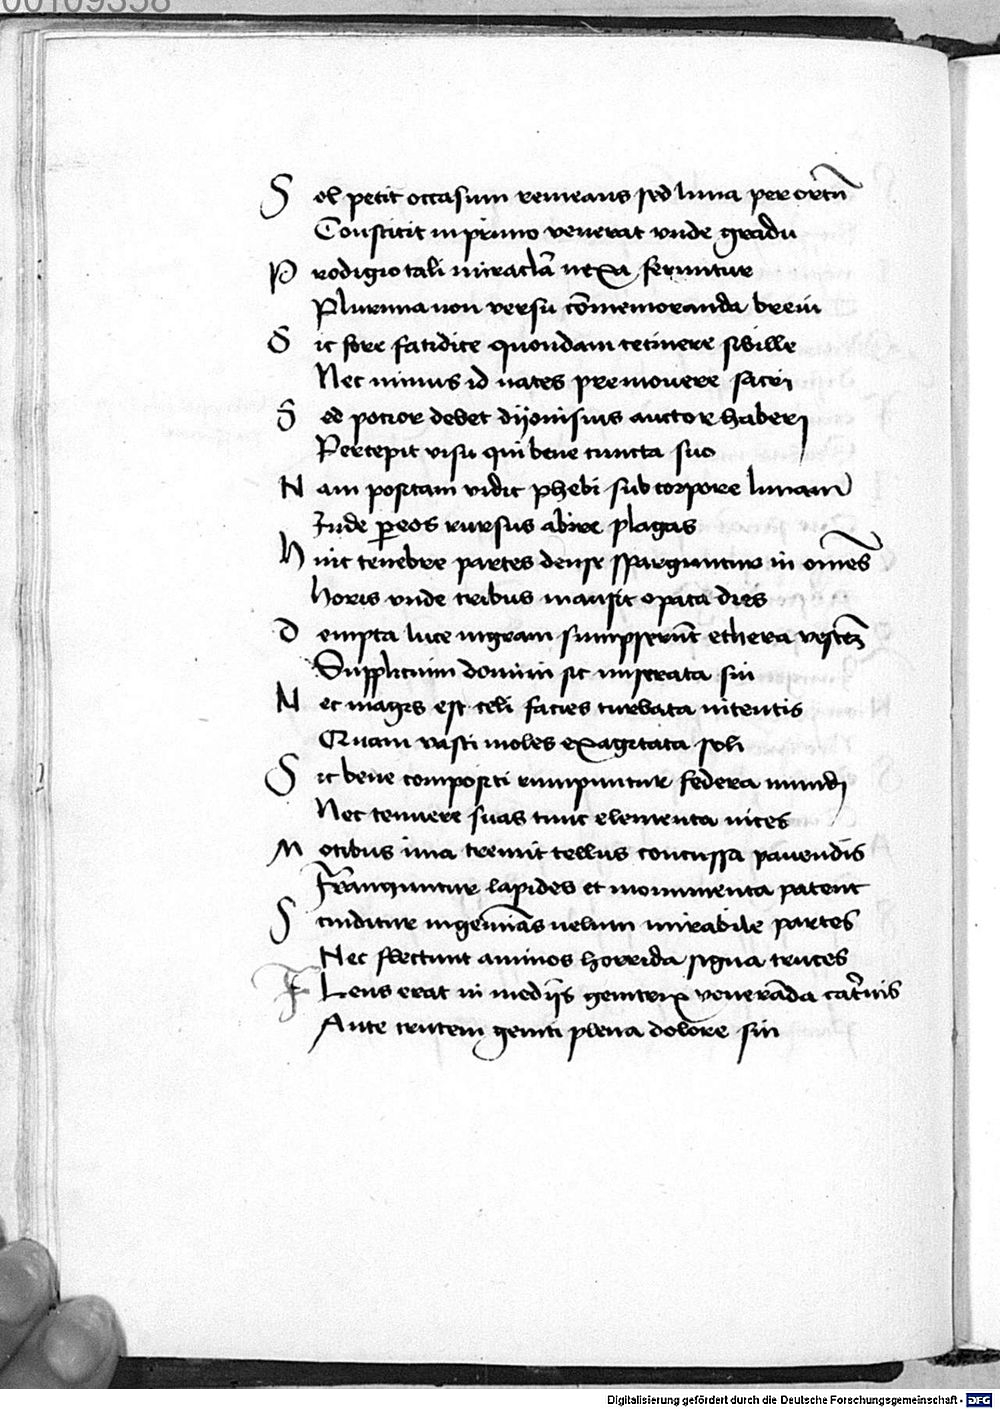 00109358
Sol petit occasum remeans sed luna per ortū
Constitit in primo venerat vnde gradu
Prodigio tali miracła vexa feruntur
Plurima non versu cōmemoranda breui
Sic fore fatidice quondam cecinere sibille
Nec minus id uates premonere sacri
Sed potior debet dijonisius auctor haberj
Percepit visu qui bene cuncta suo
Nam positam vidit phebi sub corpore lunam
Inde p eos rursus abire plagas
Hinc tenebre partes dense sparguntur in omēs
Horis vnde tribus mansit opata dies
Dempta luce nigram sumpserūt ethera vestem
Supplicium domini sic miserata sui
Nec magis est celi facies turbata nitentis
Quam vasti moles exagitata soli
Sic bene compositi rumpuntur federa mundj
Nec tenuere suas tunc elementa uices
Motibus ima tremit tellus concussa pauendis
Franguntur lapides et monumenta patent
Scinditur in geminas uelum mirabile partes
Nec flectunt animos horrida signa truces
FLens erat in medijs genitrix venerāda cat̉uis
Ante crucem geniti plena dolore sui
Digitalisierung gefördert durch die Deutsche Forschungsgemeinschaft - DFG